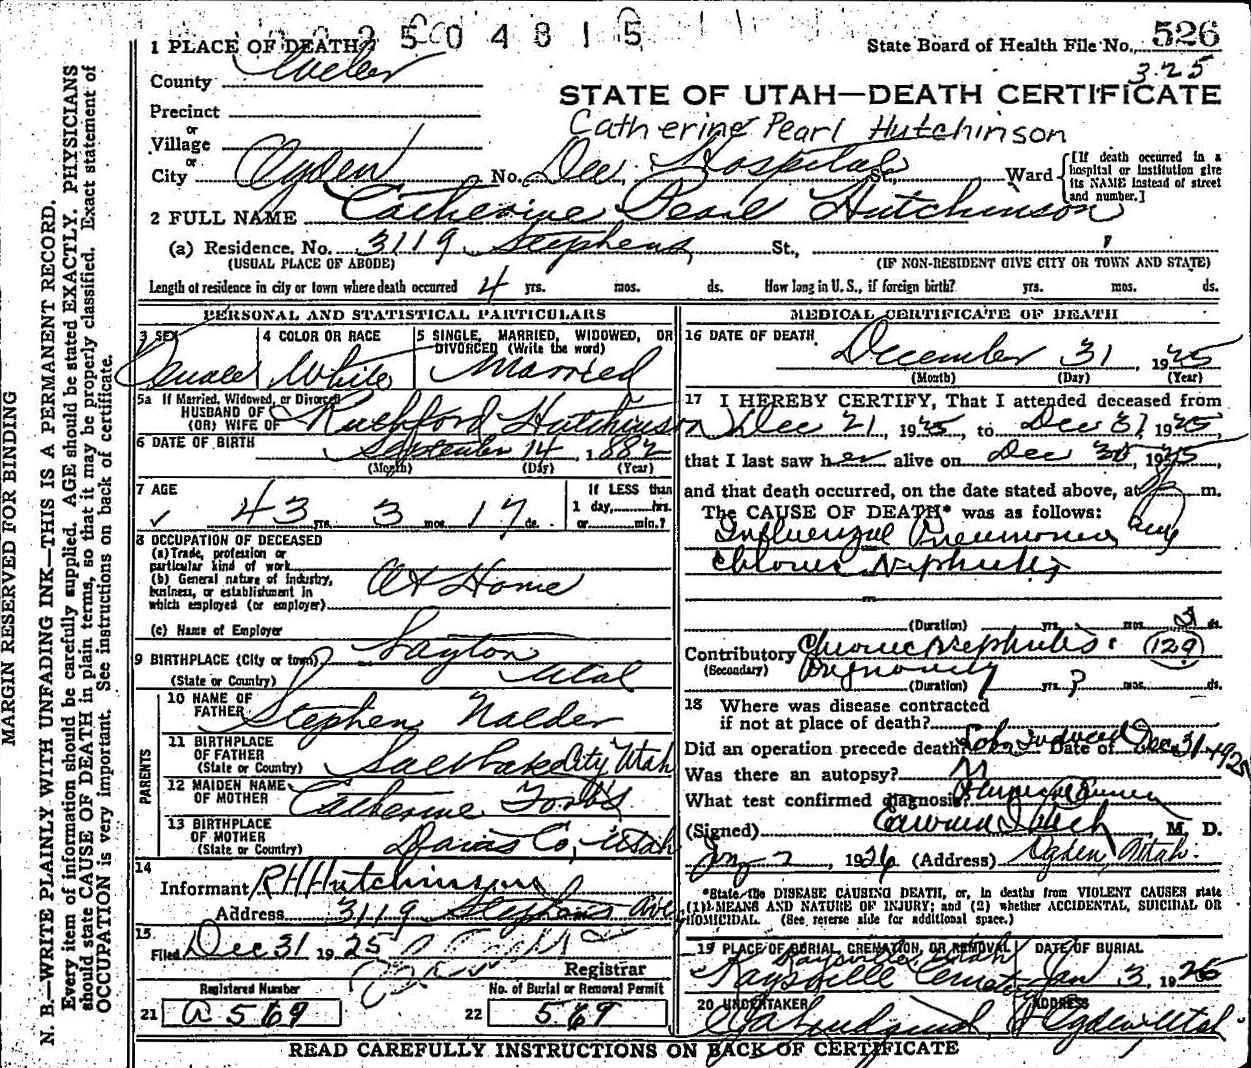 2504815
1 PLACE OF DEATH
State Board of Health File No. 526
325
County Weber
STATE OF UTAH—DEATH CERTIFICATE
Precinct
or
Village
Catherine Pearl Hutchinson
or
City Ogden No. Dee Hospital St., Ward
[If death occurred in a
hospital or institution give
its NAME instead of street
and number.]
2 FULL NAME Catherine Pearl Hutchinson
(a) Residence. No. 3119 Stephens St.,
(USUAL PLACE OF ABODE) (IF NON-RESIDENT GIVE CITY OR TOWN AND STATE)
Length of residence in city or town where death occurred 4 yrs. mos. ds. How long in U. S., if foreign birth? yrs. mos. ds.
PERSONAL AND STATISTICAL PARTICULARS
3 SEX
Female
4 COLOR OR RACE
White
5 SINGLE, MARRIED, WIDOWED, OR
DIVORCED (Write the word)
Married
5a If Married, Widowed, or Divorced
HUSBAND OF
(OR) WIFE OF Rushford Hutchinson
6 DATE OF BIRTH September 14, 1882
(Month) (Day) (Year)
7 AGE
43 yrs. 3 mos. 17 ds.
If LESS than
1 day, hrs.
or min.?
8 OCCUPATION OF DECEASED
(a) Trade, profession or
particular kind of work
(b) General nature of industry,
business, or establishment in
which employed (or employer)
At Home
(c) Name of Employer
9 BIRTHPLACE (City or town) Layton
(State or Country) Utah
PARENTS
10 NAME OF
FATHER Stephen Nalder
11 BIRTHPLACE
OF FATHER
(State or Country) Salt Lake City Utah
12 MAIDEN NAME
OF MOTHER Catherine Forbs
13 BIRTHPLACE
OF MOTHER
(State or Country) Davis Co, Utah
14
Informant R H Hutchinson
Address 3119 Stephens Ave
15
Filed Dec 31 1925
Registrar
Registered Number No. of Burial or Removal Permit
21 a 569 22 569
MEDICAL CERTIFICATE OF DEATH
16 DATE OF DEATH
December 31, 1925
(Month) (Day) (Year)
17 I HEREBY CERTIFY, That I attended deceased from
Dec 21, 1925, to Dec 31, 1925,
that I last saw her alive on Dec 31, 1925,
and that death occurred, on the date stated above, at m.
The CAUSE OF DEATH* was as follows:
Influenzal Pneumonia
Chronic Nephritis
(Duration) yrs. mos. ds.
Contributory Chronic Nephritis 129
(Secondary) Pregnancy
(Duration) yrs. ? mos. ds.
18 Where was disease contracted
if not at place of death?
Did an operation precede death? Labor Induced Date of Dec 31-1925
Was there an autopsy?
What test confirmed diagnosis?
(Signed) M. D.
Jan 2, 1926 (Address) Ogden, Utah.
*State the DISEASE CAUSING DEATH, or, in deaths from VIOLENT CAUSES state
(1) MEANS AND NATURE OF INJURY; and (2) whether ACCIDENTAL, SUICIDAL OR
HOMICIDAL. (See reverse side for additional space.)
19 PLACE OF BURIAL, CREMATION, OR REMOVAL DATE OF BURIAL
Kaysville, Utah
Kaysville Cemetery Jan 3, 1926
20 UNDERTAKER ADDRESS
Ogden, Utah.
READ CAREFULLY INSTRUCTIONS ON BACK OF CERTIFICATE
MARGIN RESERVED FOR BINDING
N. B.—WRITE PLAINLY WITH UNFADING INK—THIS IS A PERMANENT RECORD.
Every item of information should be carefully supplied. AGE should be stated EXACTLY. PHYSICIANS
should state CAUSE OF DEATH in plain terms, so that it may be properly classified. Exact statement of
OCCUPATION is very important. See instructions on back of certificate.